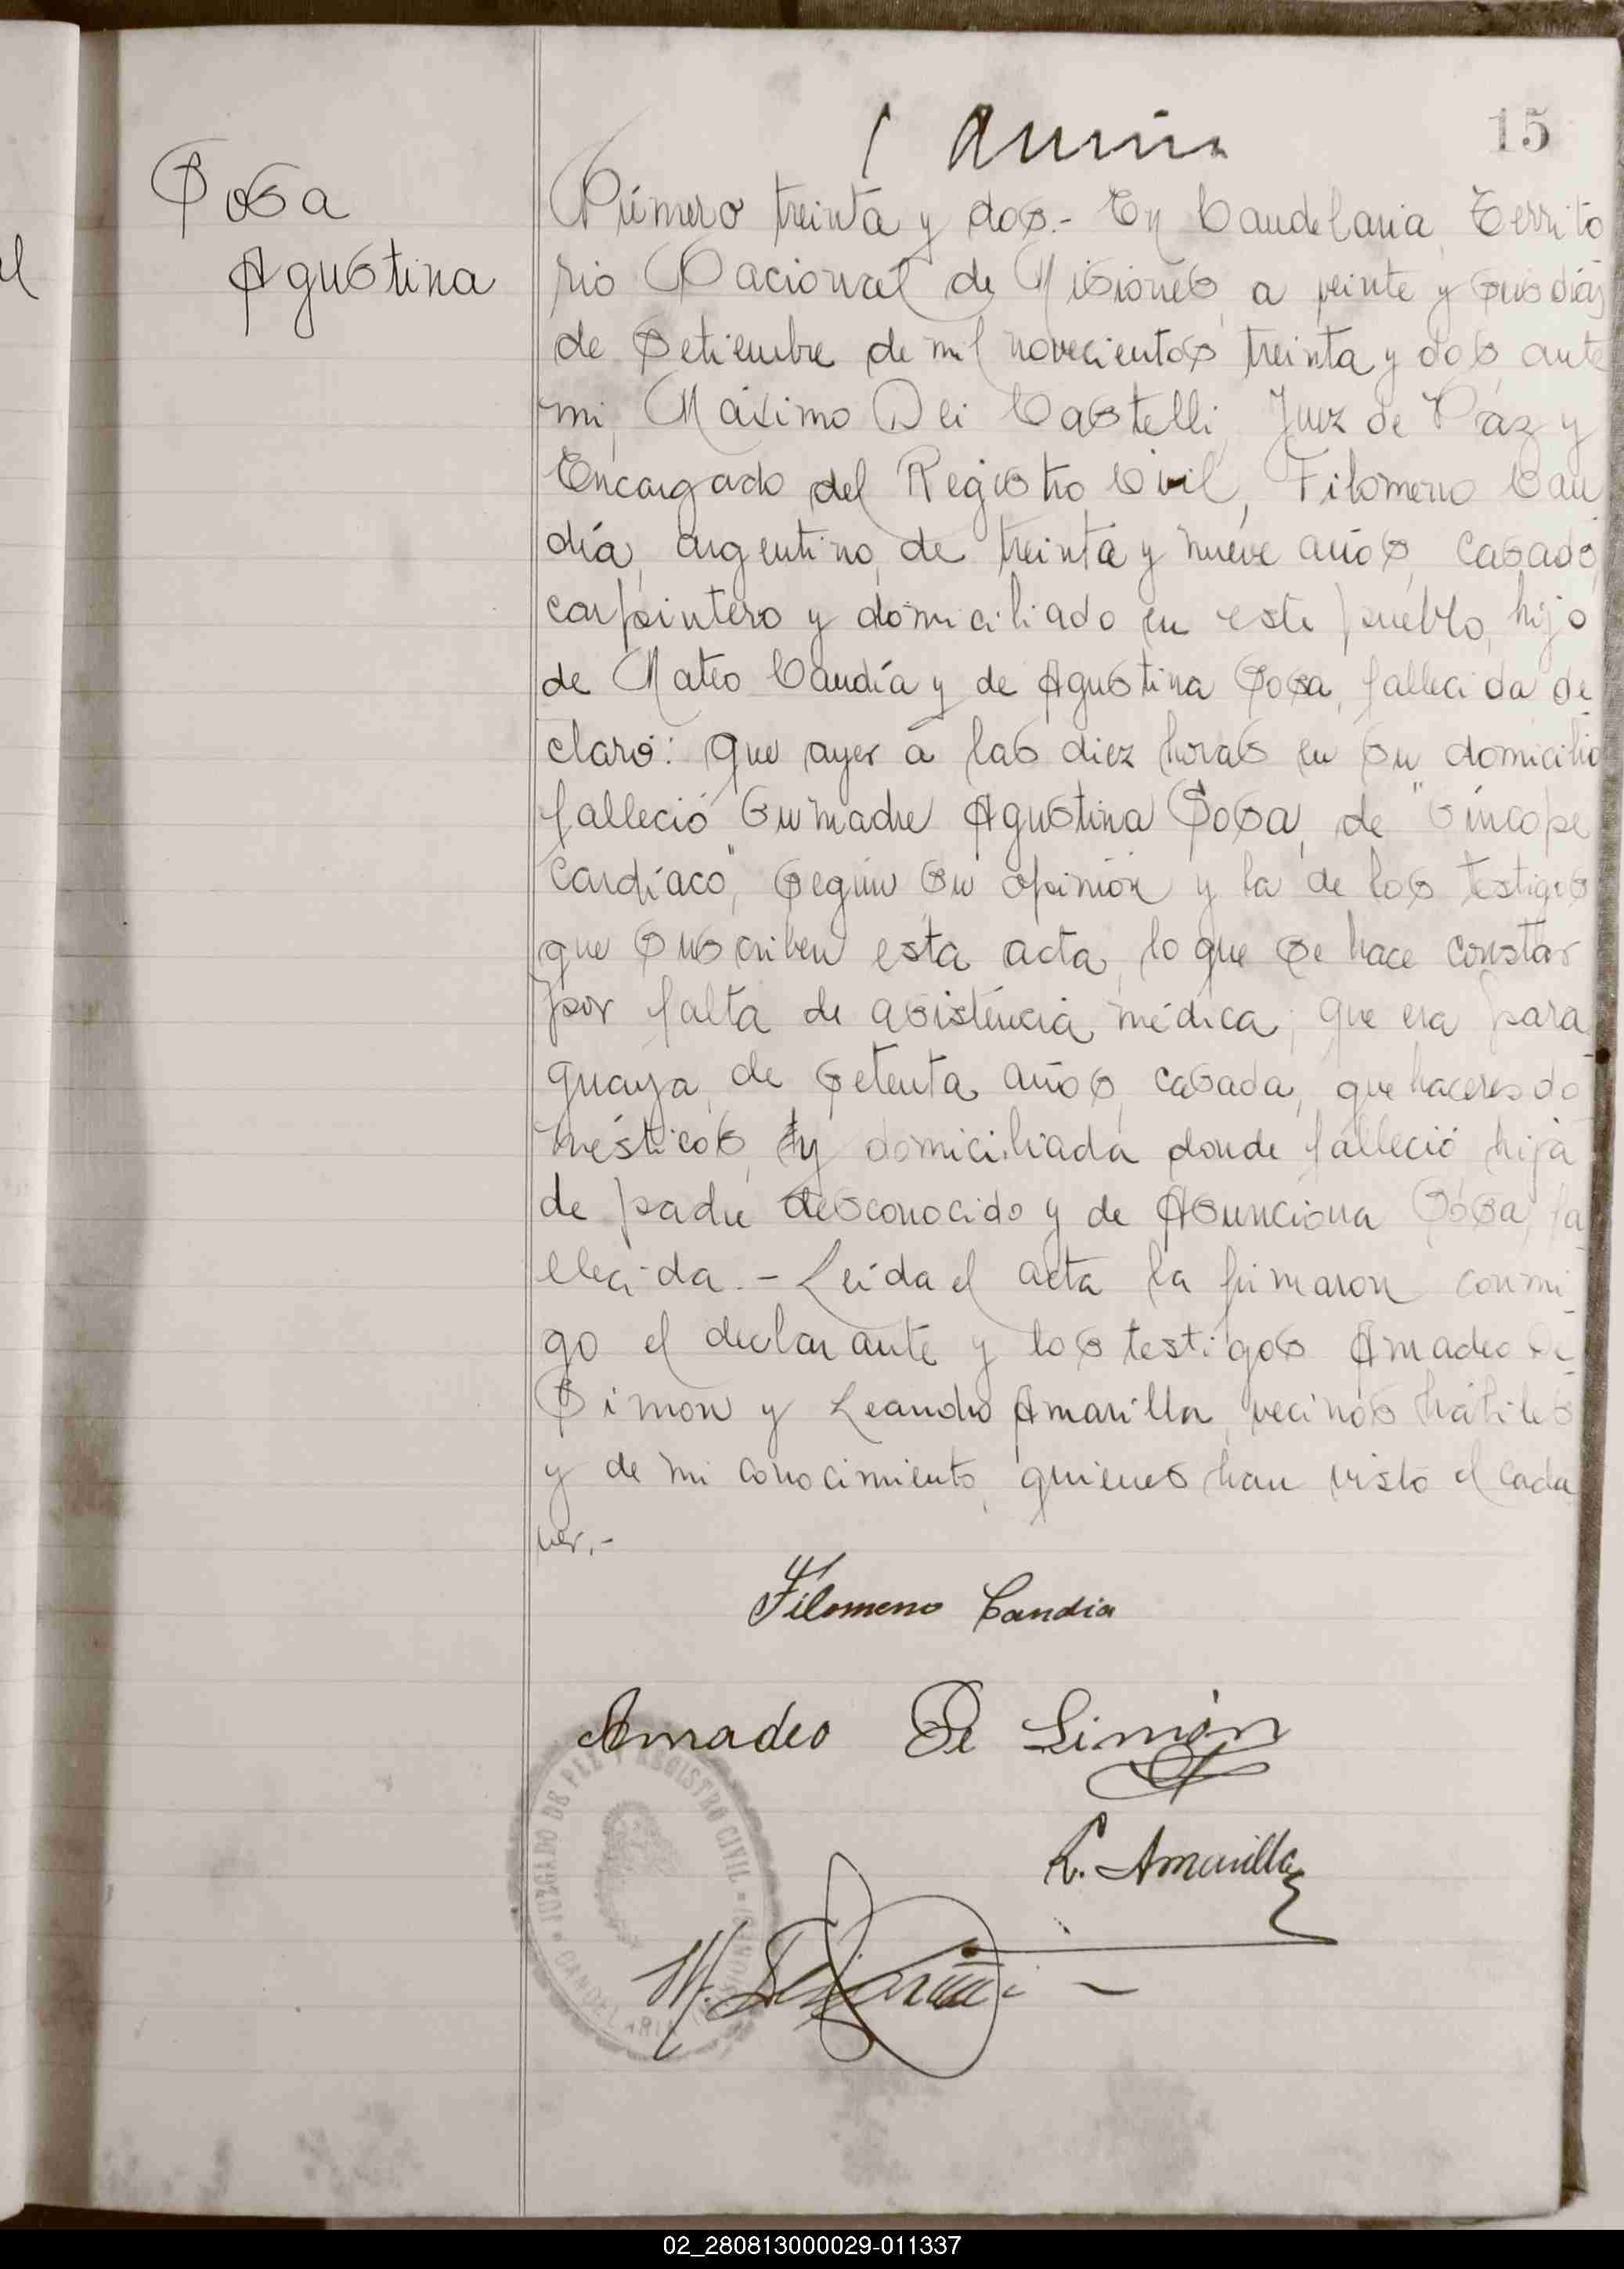 15
Sosa
Agustina
Número treinta y dos.- En Candelaria, Territo
rio Nacional de Misiones, a veinte y seis días
de Setiembre de mil novecientos treinta y dos, ante
mi, Máximo Dei Castelli, Juez de Paz y
Encargado del Registro Civil, Filomeno Can
día, argentino, de treinta y nueve años, casado,
carpintero y domiciliado en este pueblo, hijo
de Mateo Candía y de Agustina Sosa, fallecida de-
claró: que ayer á las diez horas en su domicilio
falleció su madre Agustina Sosa, de "síncope
cardíaco", según su opinión y la de los testigos
que suscriben esta acta, lo que se hace constar
por falta de asistencia médica; que era para
guaya, de setenta años, casada, quehaceres do
mésticos, y domiciliada donde falleció hija
de padre desconocido y de Asunciona Sosa, fa-
llecida.- Leída el acta la firmaron conmi-
go el declarante y los testigos Amadeo De
Simon y Leandro Amarilla, vecinos hábiles
y de mi conocimiento, quienes han visto el cada
ver.-
Filomeno Candia
Amadeo De Simón
L. Amarilla
JUZGADO DE PAZ Y REGISTRO CIVIL
CANDELARIA (MISIONES)
M. Dei Castelli
02_280813000029-011337